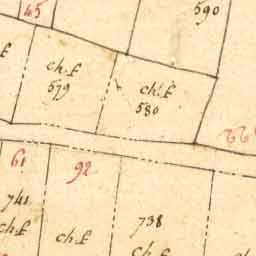 45
590
ch. f
579
ch. f
580
61
92
741
ch. f
ch. f
738
ch. f